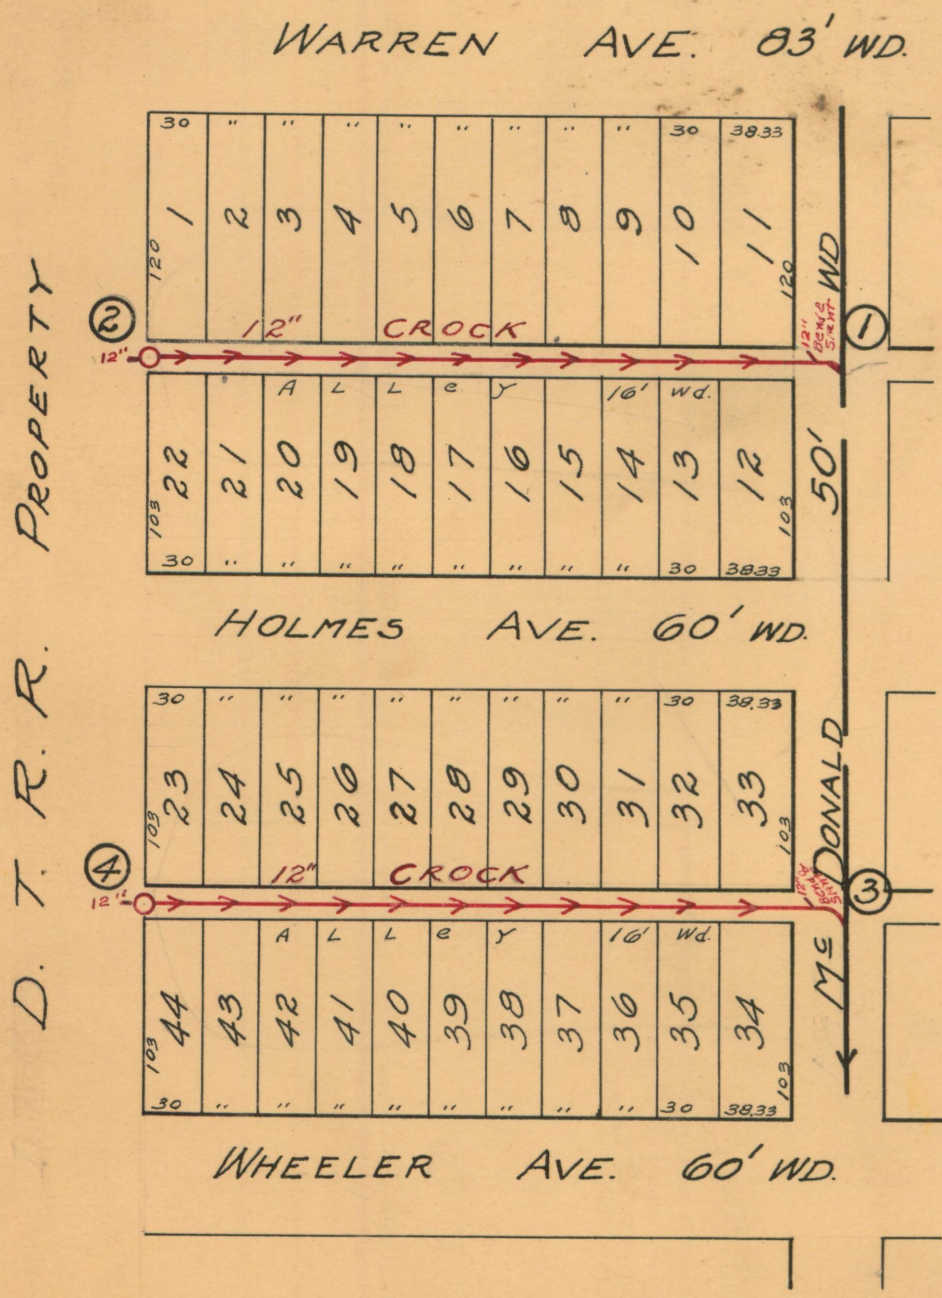 WARREN AVE. 83' WD.
30 " " " " " " " " 30 38.33
1 2 3 4 5 6 7 8 9 10 11
120 120
② 12" CROCK ①
12"
12"
ALLeY 16' Wd.
22 21 20 19 18 17 16 15 14 13 12
103 103
30 " " " " " " " " 30 38.33
HOLMES AVE. 60' WD.
30 " " " " " " " " 30 38.33
23 24 25 26 27 28 29 30 31 32 33
103 103
④ 12" CROCK ③
12"
12"
ALLeY 16' Wd.
44 43 42 41 40 39 38 37 36 35 34
103 103
30 " " " " " " " " 30 38.33
WHEELER AVE. 60' WD.
D. T. R. R. PROPERTY
Mc DONALD 50' WD